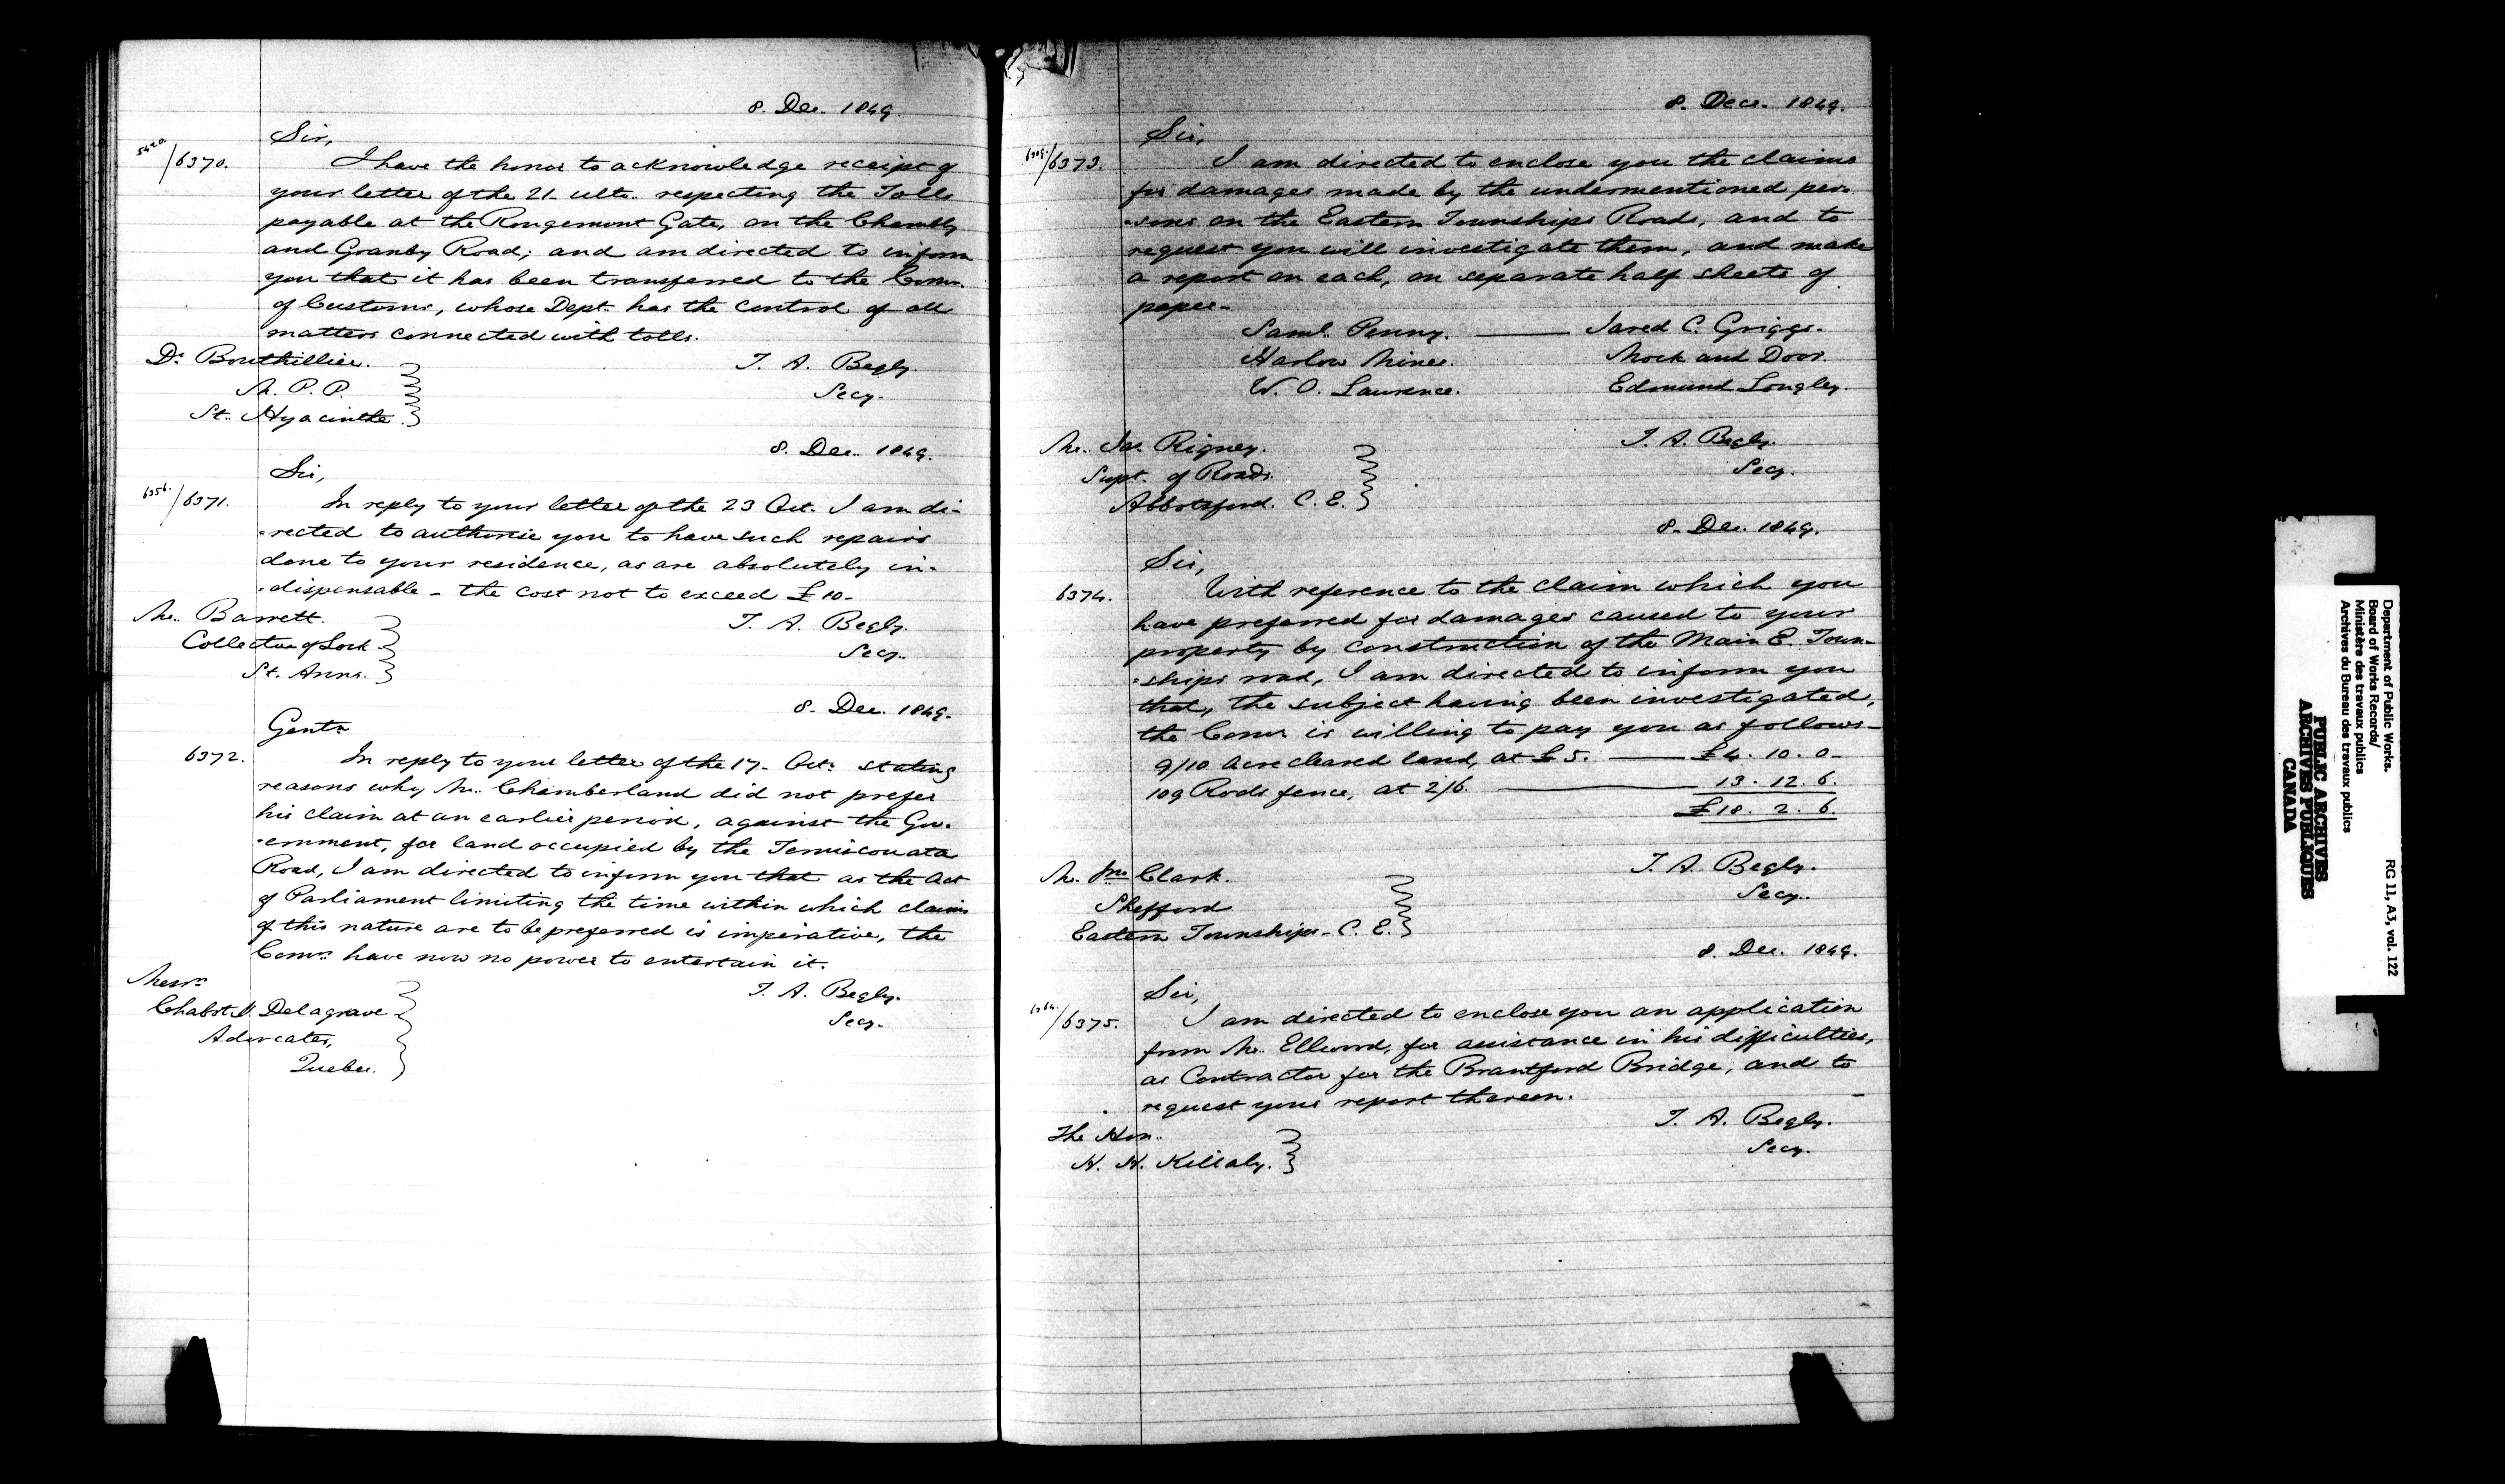 8. Dec. 1849.
Sir,
5420./6370. I have the honor to acknowledge receipt of
your letter of the 21. ulto. respecting the Tolls
payable at the Rougemont Gate, on the Chambly
and Granby Road; and am directed to inform
you that it has been transferred to the Comr.
of Customs, whose Dept. has the control of all
matters connected with tolls.
Dr. Bouthillier.
M. P. P.
St. Hyacinthe.
T. A. Begly.
Secy.
8. Dec. 1849.
Sir,
6356./6371. In reply to your letter of the 23 Oct. I am di-
-rected to authorise you to have such repairs
done to your residence, as are absolutely in-
-dispensable - the cost not to exceed £10-
Mr. Barrett.
Collector of Lock
St. Anns.
T. A. Begly.
Secy.
8. Dec. 1849.
Gents
6372. In reply to your letter of the 17. Oct. stating
reasons why Mr. Chamberland did not prefer
his claim at an earlier period, against the Gov-
-ernment, for land occupied by the Temiscouata
Road, I am directed to inform you that as the Act
of Parliament limiting the time within which claims
of this nature are to be preferred is imperative, the
Comrs. have now no power to entertain it.
Messrs.
Delagrave
Advocates,
Quebec.
T. A. Begly.
Secy.
8. Decr. 1849.
Sir,
/6373. I am directed to enclose you the claims
for damages made by the undermentioned per-
-sons on the Eastern Townships Roads, and to
request you will investigate them, and make
a report on each, on separate half sheets of
paper-
Saml. Penny. — Jared C. Griggs.
Harlow Miner. Mock and Door.
W. O. Lawrence. Edmund Longley.
Mr. Jas. Rigney.
Supt. of Roads.
Abbotsford. C. E.
T. A. Begly.
Secy.
8. Dec. 1849.
Sir,
6374. With reference to the claim which you
have preferred for damages caused to your
property by construction of the Main E. Town-
-ships road, I am directed to inform you
that, the subject having been investigated,
the Comr. is willing to pay you as follows-
9/10 Acre cleared land, at £5. — £4. 10. 0-
109 Rods fence, at 2/6. — 13. 12. 6.
£18. 2. 6.
Mr. Jno. Clark.
Shefford
Eastern Townships- C. E.
T. A. Begly.
Secy.
8. Dec. 1849.
Sir,
/6375. I am directed to enclose you an application
from Mr. Ellwood, for assistance in his difficulties,
as Contractor for the Brantford Bridge, and to
request your report thereon.
The Hon.
H. H. Killaly.
T. A. Begly.
Secy.
Department of Public Works.
Board of Works Records/
Ministère des travaux publics
Archives du Bureau des travaux publics
RG 11, A3, vol. 122
PUBLIC ARCHIVES
ARCHIVES PUBLIQUES
CANADA